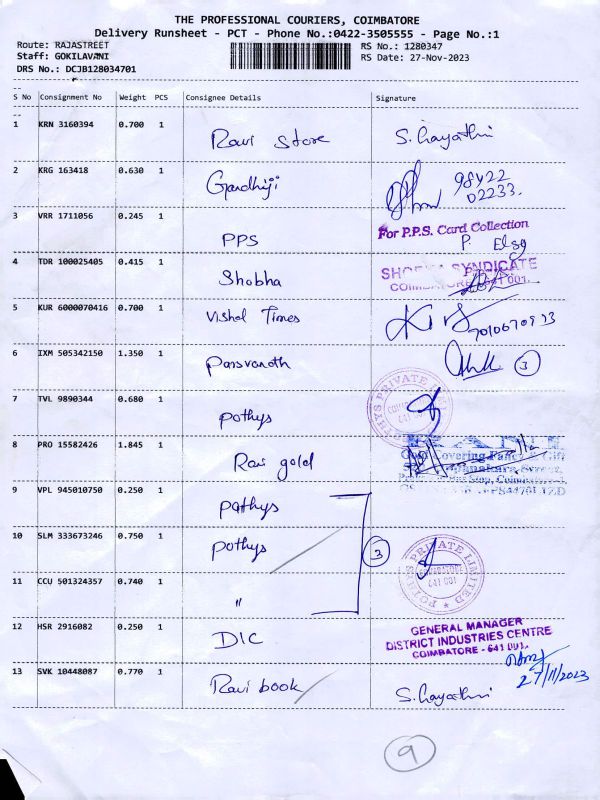 THE PROFESSIONAL COURIERS, COIMBATORE
Delivery Runsheet - PCT - Phone No.:0422-3505555 - Page No.:1
Route: RAJASTREET RS No.: 1280347
Staff: GOKILAVANI RS Date: 27-Nov-2023
DRS No.: DCJB128034701
S No Consignment No Weight PCS Consignee Details Signature
1 KRN 3160394 0.700 1 Ravi Store S. Gayathri
2 KRG 163418 0.630 1 Gandhiji 98422
02233.
3 VRR 1711056 0.245 1 PPS For P.P.S. Card Collection
P.
4 TDR 100025405 0.415 1 Shobha SHOBHA SYNDICATE
COIMBATORE - 641 001.
5 KUR 6000070416 0.700 1 Vishal Times
6 IXM 505342150 1.350 1 Parsvanath 3
7 TVL 9890344 0.680 1 Pothys POTHYS PRIVATE LIMITED
641 001
8 PRO 15582426 1.845 1 Ravi gold
9 VPL 945010750 0.250 1 Pothys
10 SLM 333673246 0.750 1 Pothys 3 POTHYS PRIVATE LIMITED
COIMBATORE
641 001
11 CCU 501324357 0.740 1 "
12 HSR 2916082 0.250 1 DIC GENERAL MANAGER
DISTRICT INDUSTRIES CENTRE
COIMBATORE - 641 001.
27/11/2023
13 SVK 10448087 0.770 1 Ravi book S. Gayathri
9